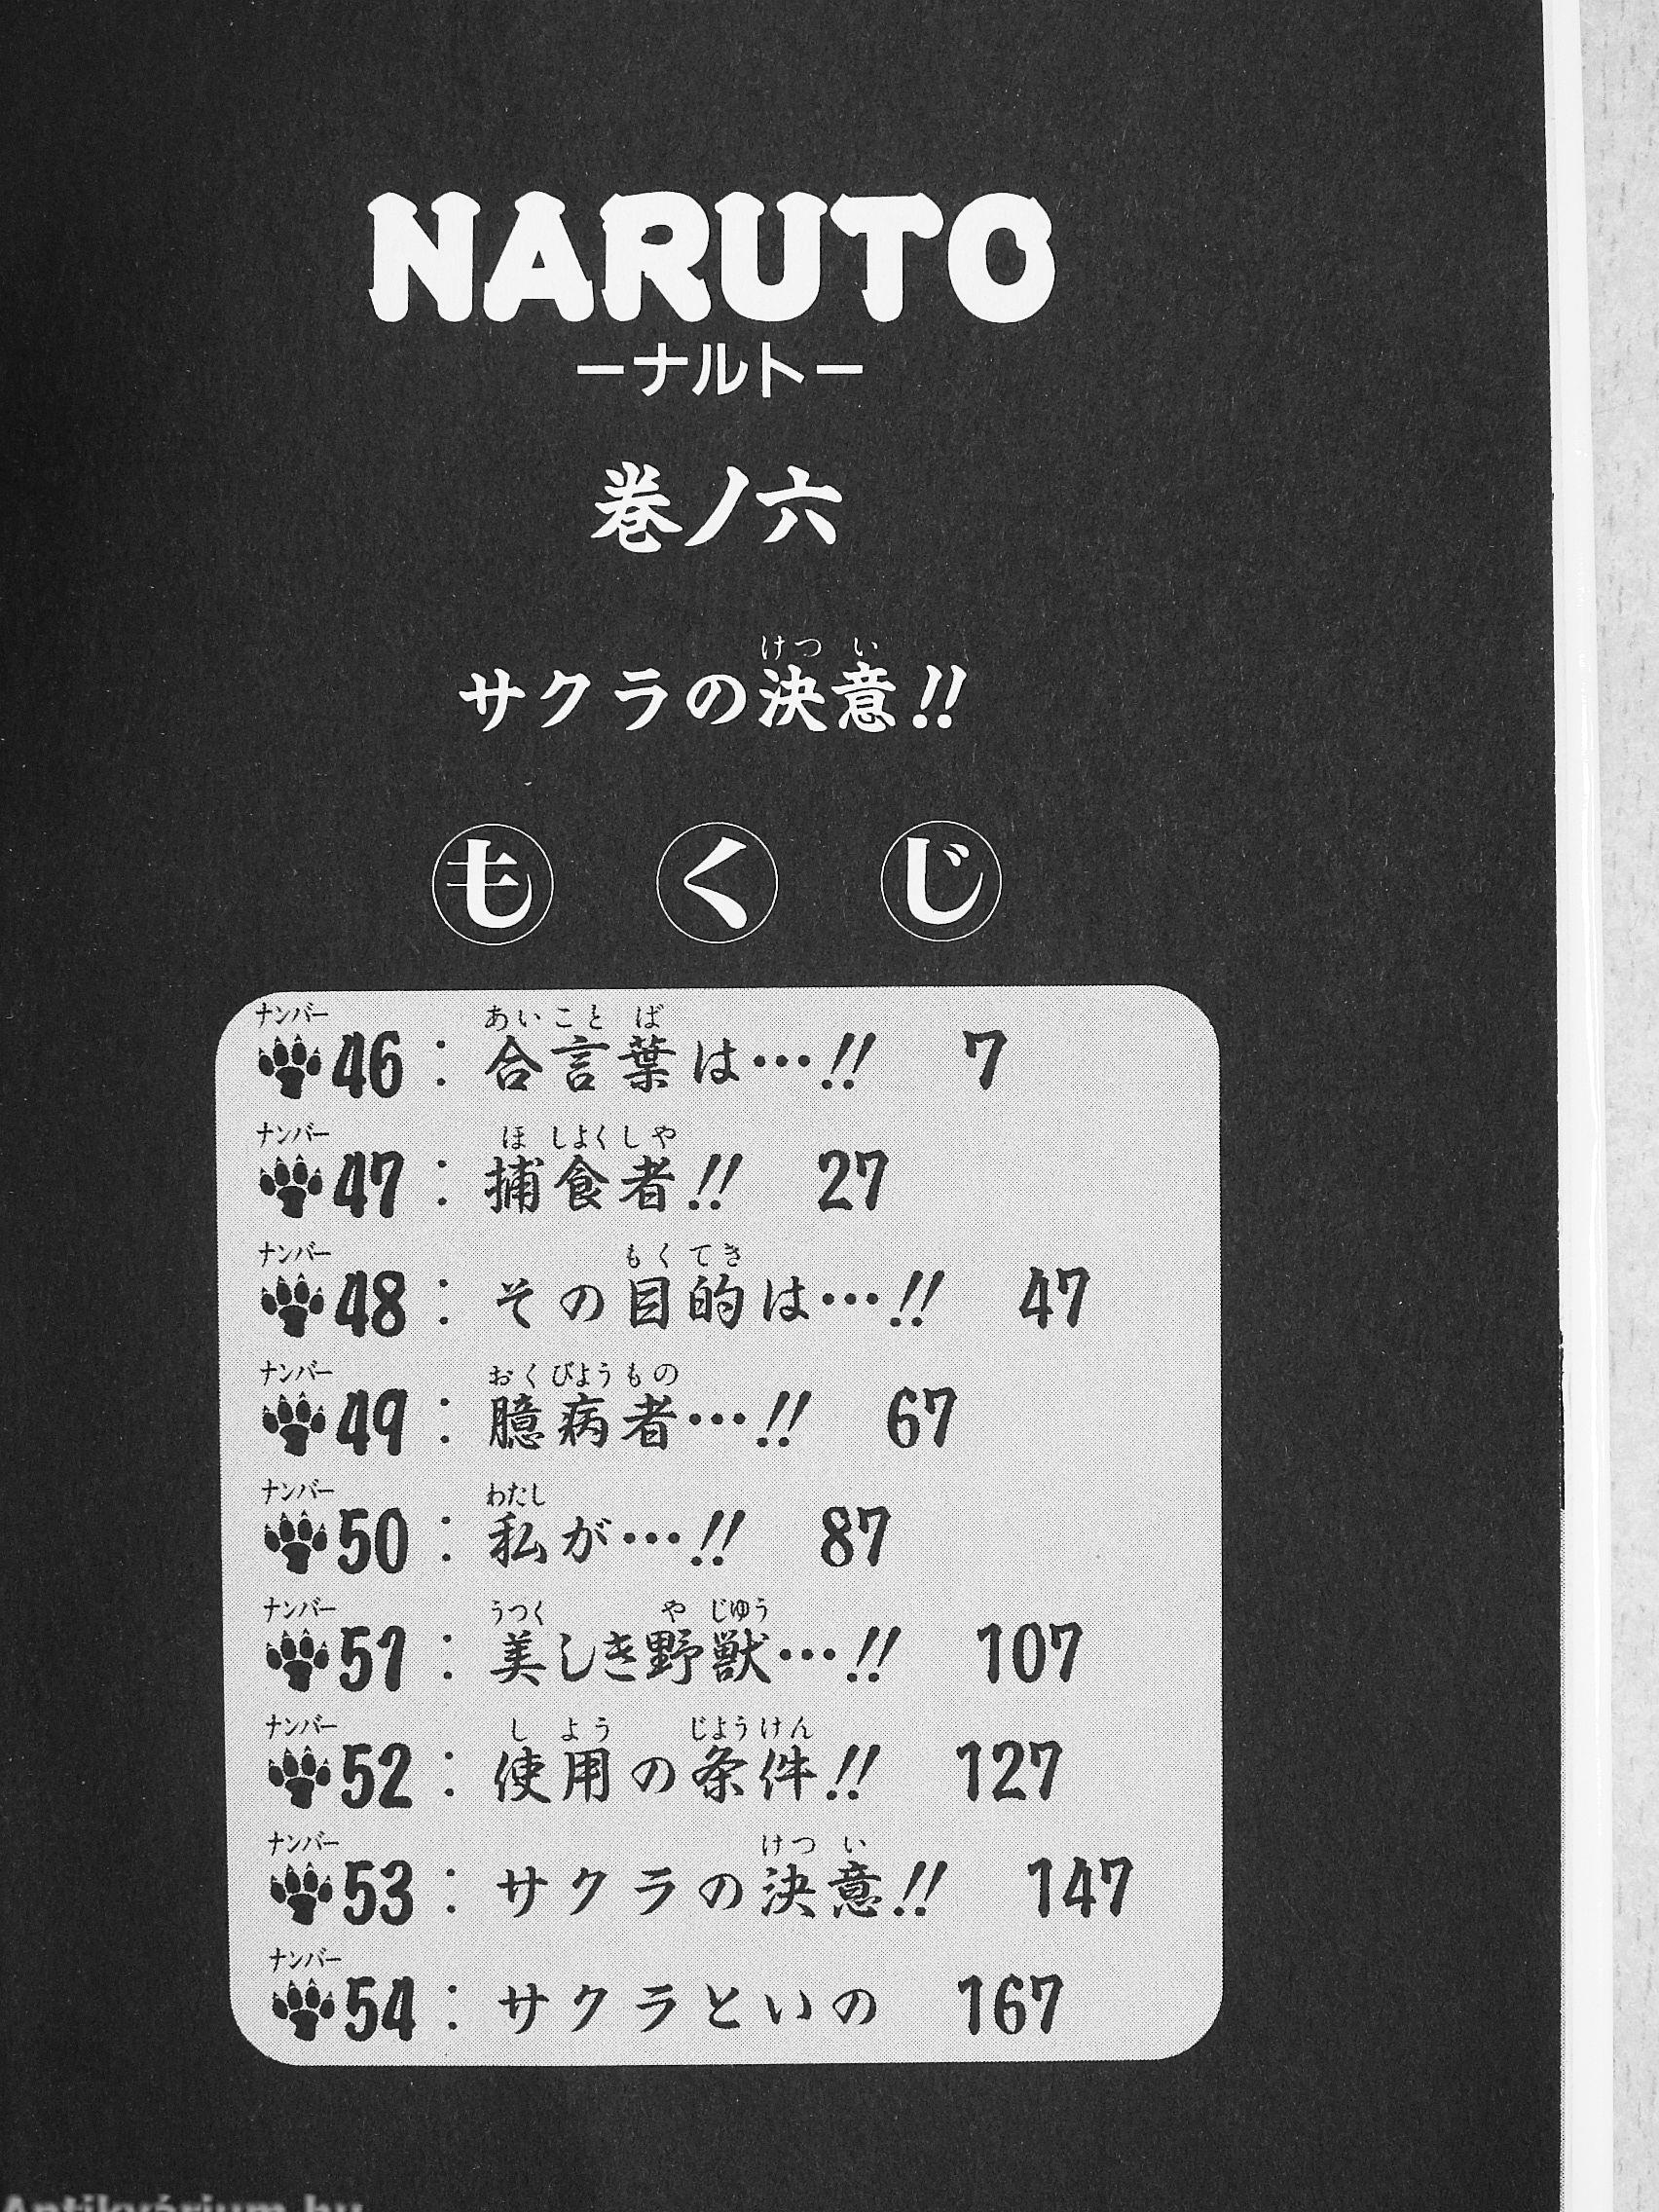 NARUTO
ーナルトー
巻ノ六
けつい
サクラの決意!!
もくじ
ナンバー あいことば
46：合言葉は…!! 7
ナンバー ほしょくしゃ
47：捕食者!! 27
ナンバー もくてき
48：その目的は…!! 47
ナンバー おくびょうもの
49：臆病者…!! 67
ナンバー わたし
50：私が…!! 87
ナンバー うつく やじゅう
51：美しき野獣…!! 107
ナンバー しよう じょうけん
52：使用の条件!! 127
ナンバー けつい
53：サクラの決意!! 147
ナンバー
54：サクラといの 167
Antikvárium.hu